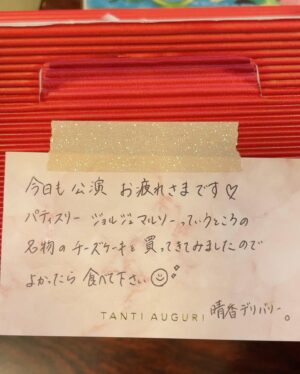 今日も公演 お疲れさまです♡
パティスリー ジョルジュマルソーっていうところの
名物のチーズケーキを買ってきてみましたので
よかったら食べて下さい☺
TANTI AUGURI 晴香デリバリー。